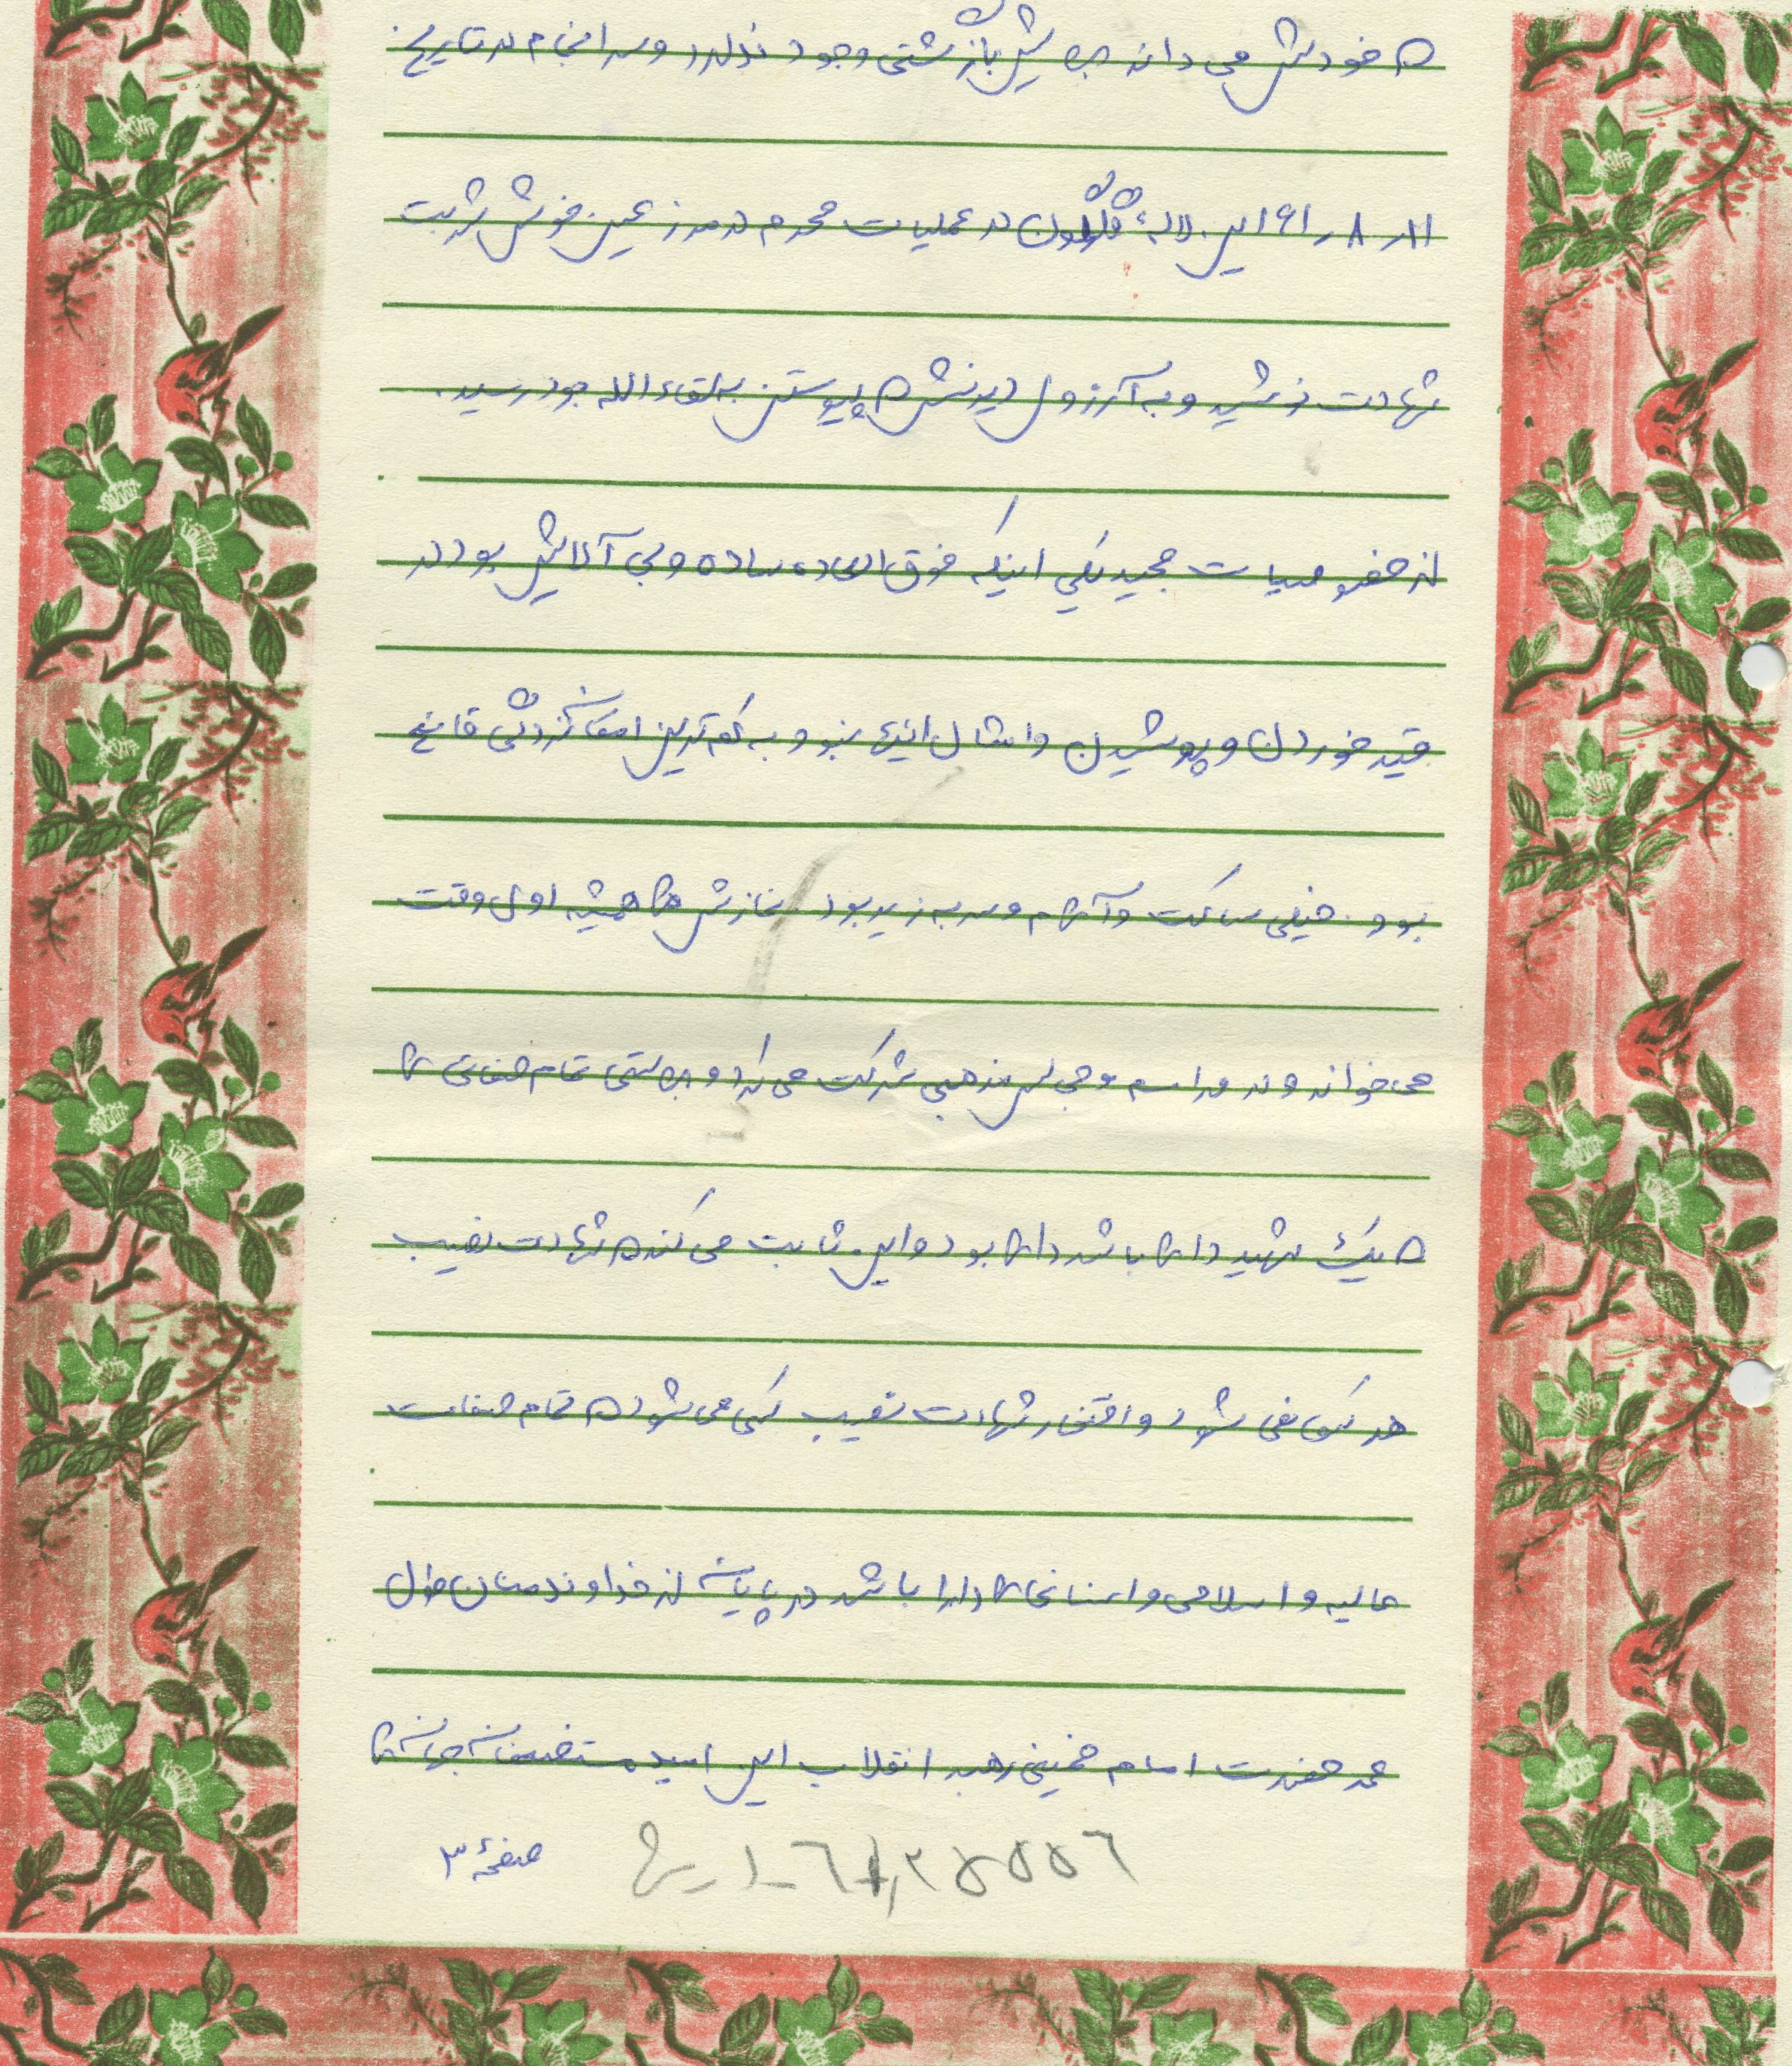 که خودش می داند برایش بازگشتی وجود ندارد و سرانجام در تاریخ
۱۱ر۸ر۶۱ این لالهٔ گلگون در عملیات محرم در مرز عین خوش شربت
شهادت نوشید و به آرزوی دیرینش که پیوستن به لقاء الله بود رسید.
از خصوصیات مجید یکی اینکه فوق العاده ساده و بی آلایش بود در
قید خوردن و پوشیدن و امثال اینها نبود و به کم ترین امکانات زندگی قانع
بود. خیلی ساکت و آرام و سر به زیر بود نمازش را همیشه اول وقت
می خواند و در مراسم و مجالس مذهبی شرکت می کرد و براستی تمام صفاتی را
که یک شهید دارا باشد دارا بود و این ثابت می کند که شهادت نصیب
هر کس نمی شود و افتخار شهادت نصیب کسی می شود که تمام صفات
عالیه و اسلامی و انسانی را دارا باشد در پایان از خداوند منان طول
عمر حضرت امام خمینی رهبر انقلاب این امید مستضعفان جهان را
صفحهٔ ۳